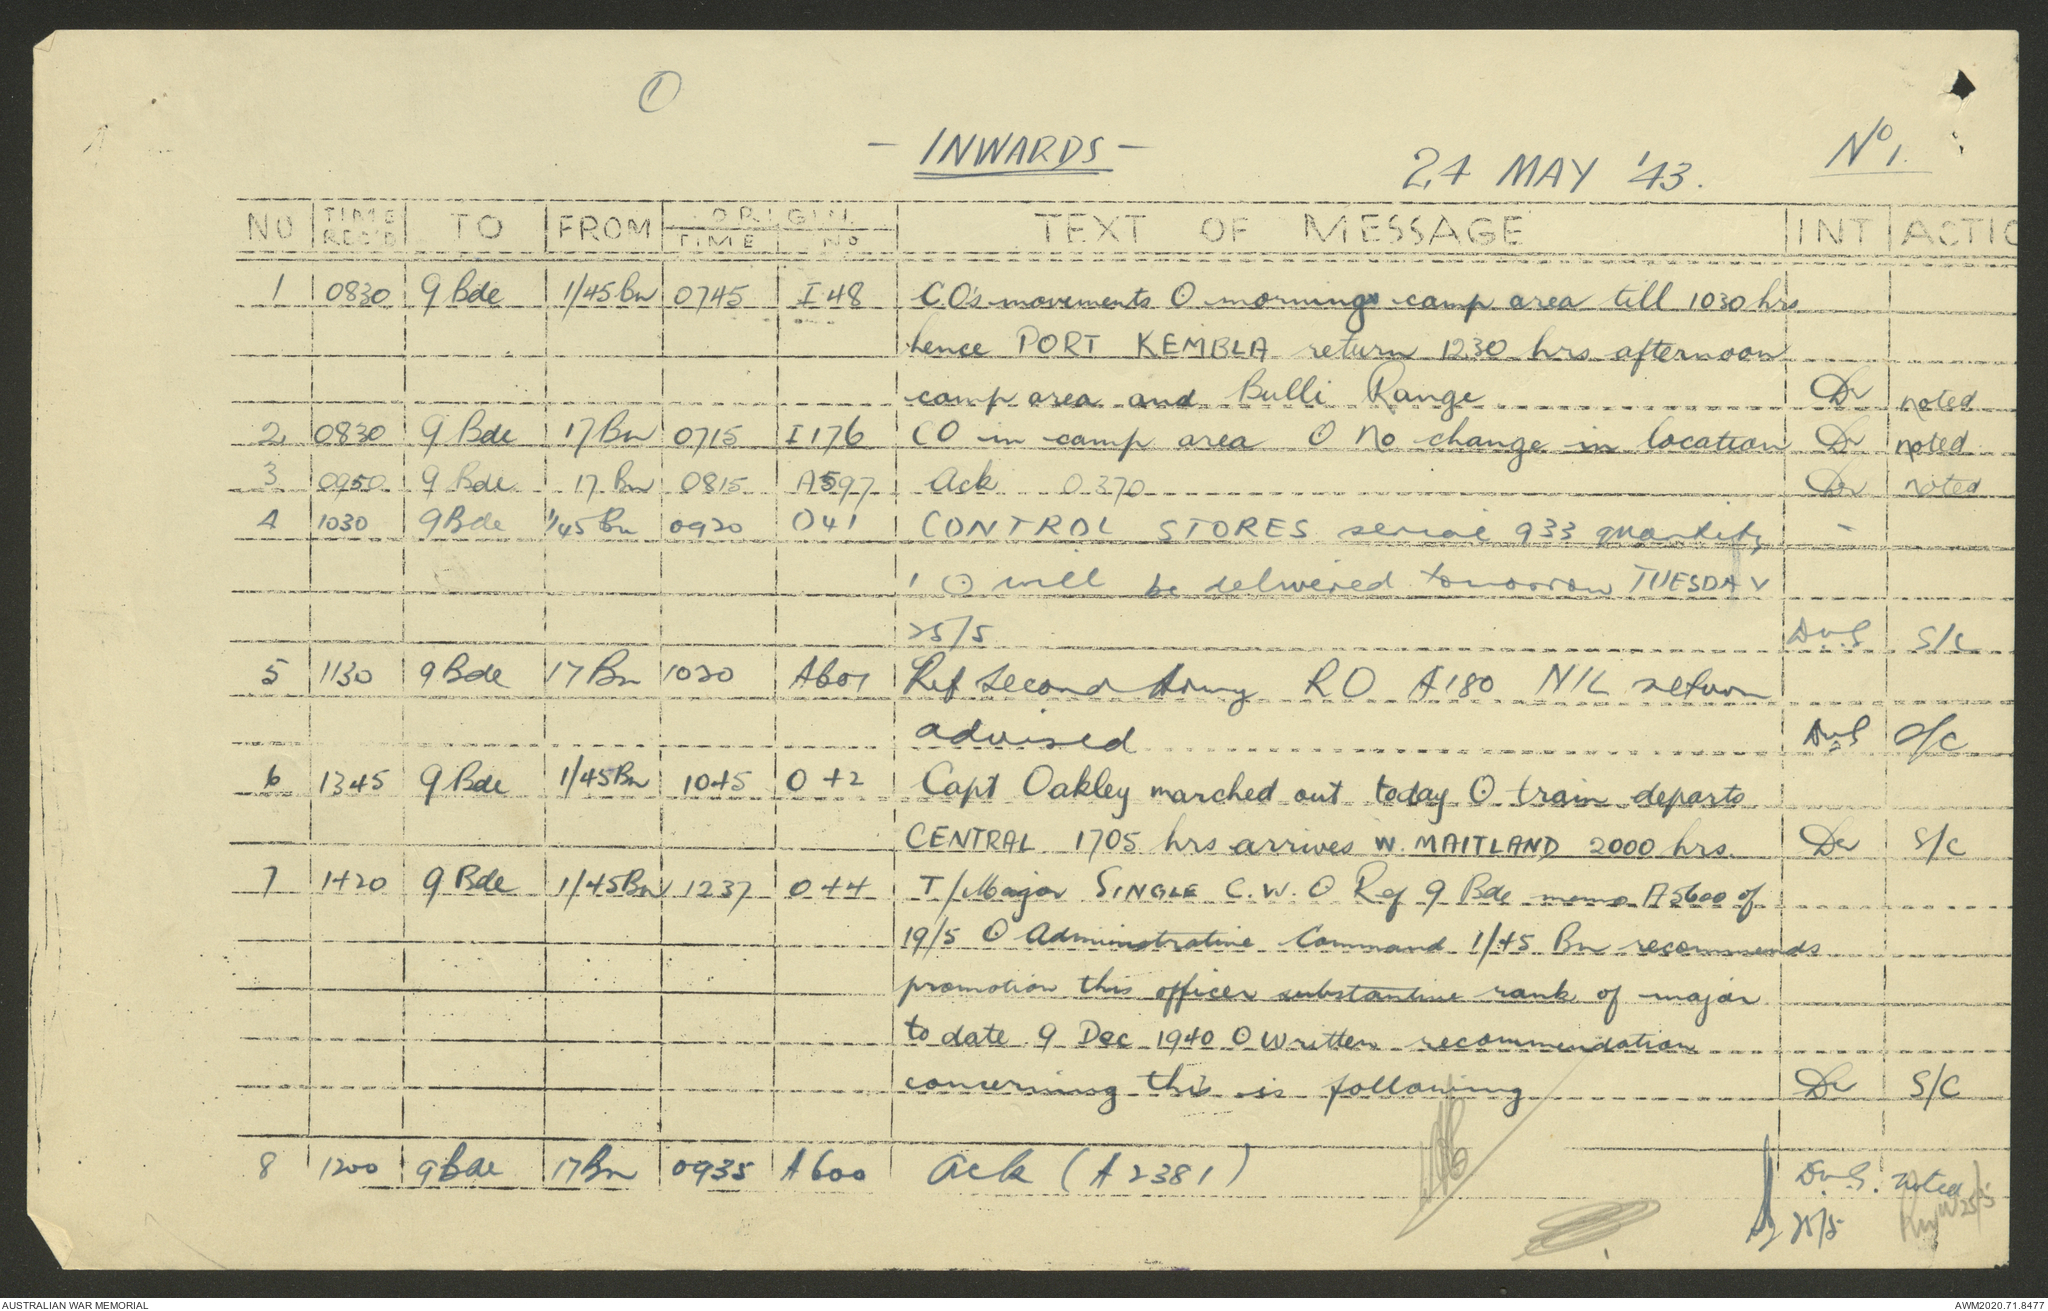 1
- INWARDS -
24 MAY '43.
No 1.
NO TIME REC'D TO FROM ORIGIN TIME NO TEXT OF MESSAGE INT ACTIO
1 0830 9 Bde 1/45 Bn 0745 I 48 CO's movements O morning camp area till 1030 hrs
hence PORT KEMBLA return 1230 hrs afternoon
camp area and Bulli Range noted
2 0830 9 Bde 17 Bn 0715 I 176 CO in camp area O No change in location noted
3 0950 9 Bde 17 Bn 0815 A597 Ack O370 noted
4 1030 9 Bde 1/45 Bn 0920 O41 CONTROL STORES serial 933 quantity -
1 O will be delivered tomorrow TUESDAY
25/5 DvS S/C
5 1130 9 Bde 17 Bn 1020 A601 Ref Second Army RO A180 NIL return
advised DvS S/C
6 1345 9 Bde 1/45 Bn 1045 O 42 Capt Oakley marched out today O train departs
CENTRAL 1705 hrs arrives W. MAITLAND 2000 hrs. S/C
7 1420 9 Bde 1/45 Bn 1237 O 44 T/Major SINGLE C.W. O Ref 9 Bde memo A5600 of
19/5 O Administrative Command 1/45 Bn recommends
promotion this officer substantive rank of major
to date 9 Dec 1940 O written recommendation
concerning this is following S/C
8 1200 9 Bde 17 Bn 0935 A600 Ack (A2381) DvS. Noted
25/5 25/5
AUSTRALIAN WAR MEMORIAL
AWM2020.71.8477